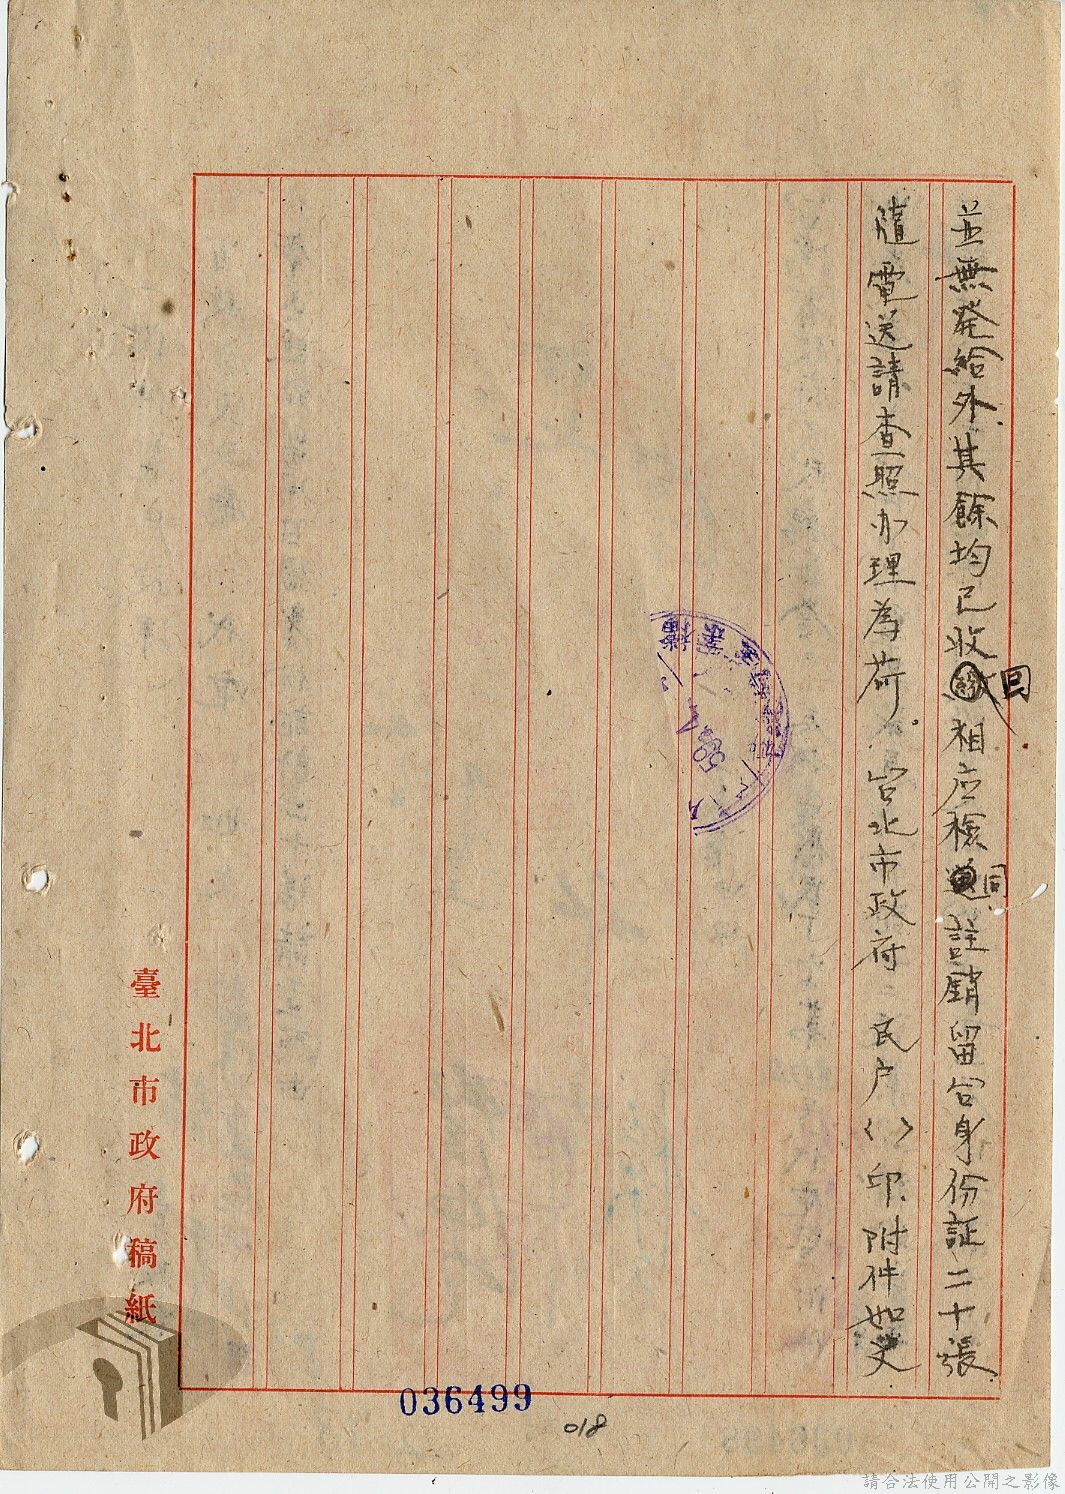 並無発給外其餘均已收回相应檢同註銷留台身份証二十張
隨電送請查照办理為荷。台北市政府民戶〈〉印附件如文
臺北市政府稿紙
036499
018
請合法使用公開之影像